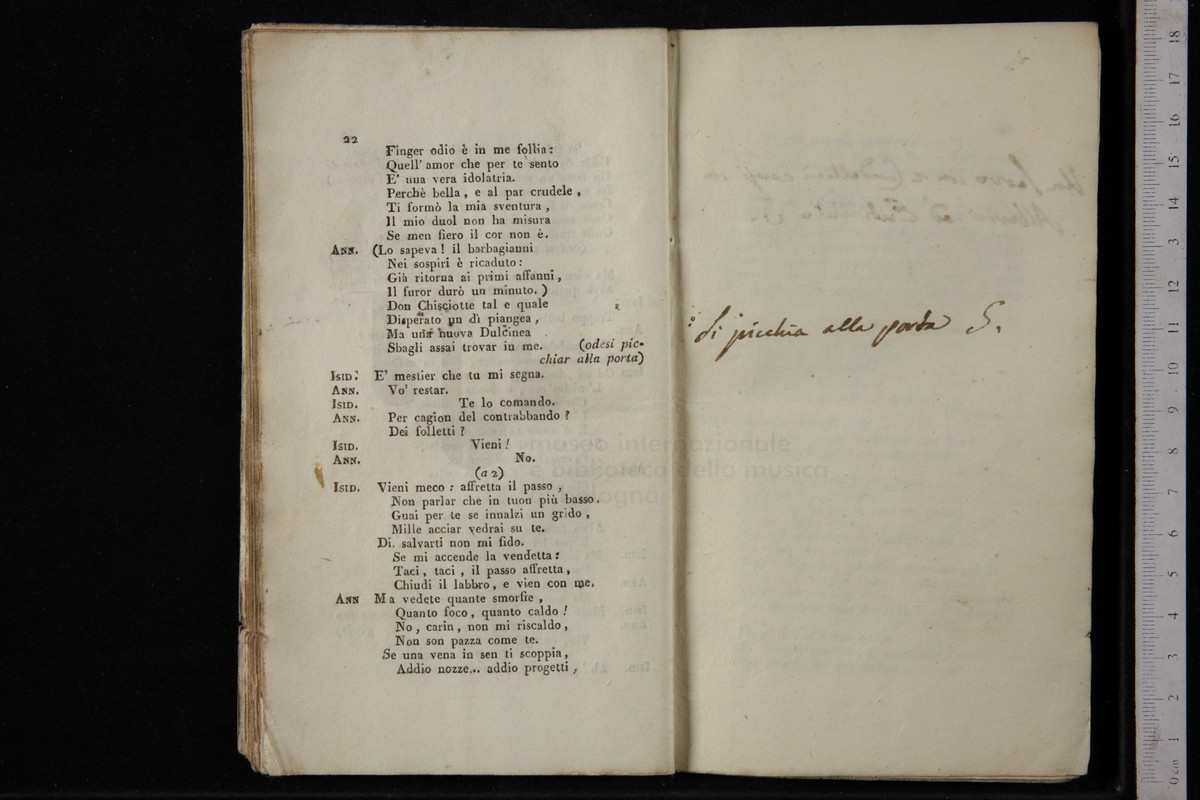 22
Finger odio è in me follia:
Quell' amor che per te sento
E' una vera idolatria.
Perchè bella, e al par crudele,
Ti formò la mia sventura,
Il mio duol non ha misura
Se men fiero il cor non è.
ANN. (Lo sapeva! il barbagianni
Nei sospiri è ricaduto:
Già ritorna ai primi affanni,
Il furor durò un minuto.)
Don Chisciotte tal e quale
Disperato un dì piangea,
Ma una nuova Dulcinea
Sbagli assai trovar in me. (odesi pic-
chiar alla porta)
ISID. E' mestier che tu mi segna.
ANN. Vo' restar.
ISID. Te lo comando.
ANN. Per cagion del contrabbando?
Dei folletti?
ISID. Vieni!
ANN. No.
(a 2)
ISID. Vieni meco: affretta il passo,
Non parlar che in tuon più basso.
Guai per te se innalzi un grido,
Mille acciar vedrai su te.
Di salvarti non mi fido.
Se mi accende la vendetta:
Taci, taci, il passo affretta,
Chiudi il labbro, e vien con me.
ANN Ma vedete quante smorfie,
Quanto foco, quanto caldo!
No, carin, non mi riscaldo,
Non son pazza come te.
Se una vena in sen ti scoppia,
Addio nozze... addio progetti,
Si picchia alla porta S.
museo internazionale
e biblioteca della musica
bologna
0 cm 1 2 3 4 5 6 7 8 9 10 11 12 13 14 15 16 17 18